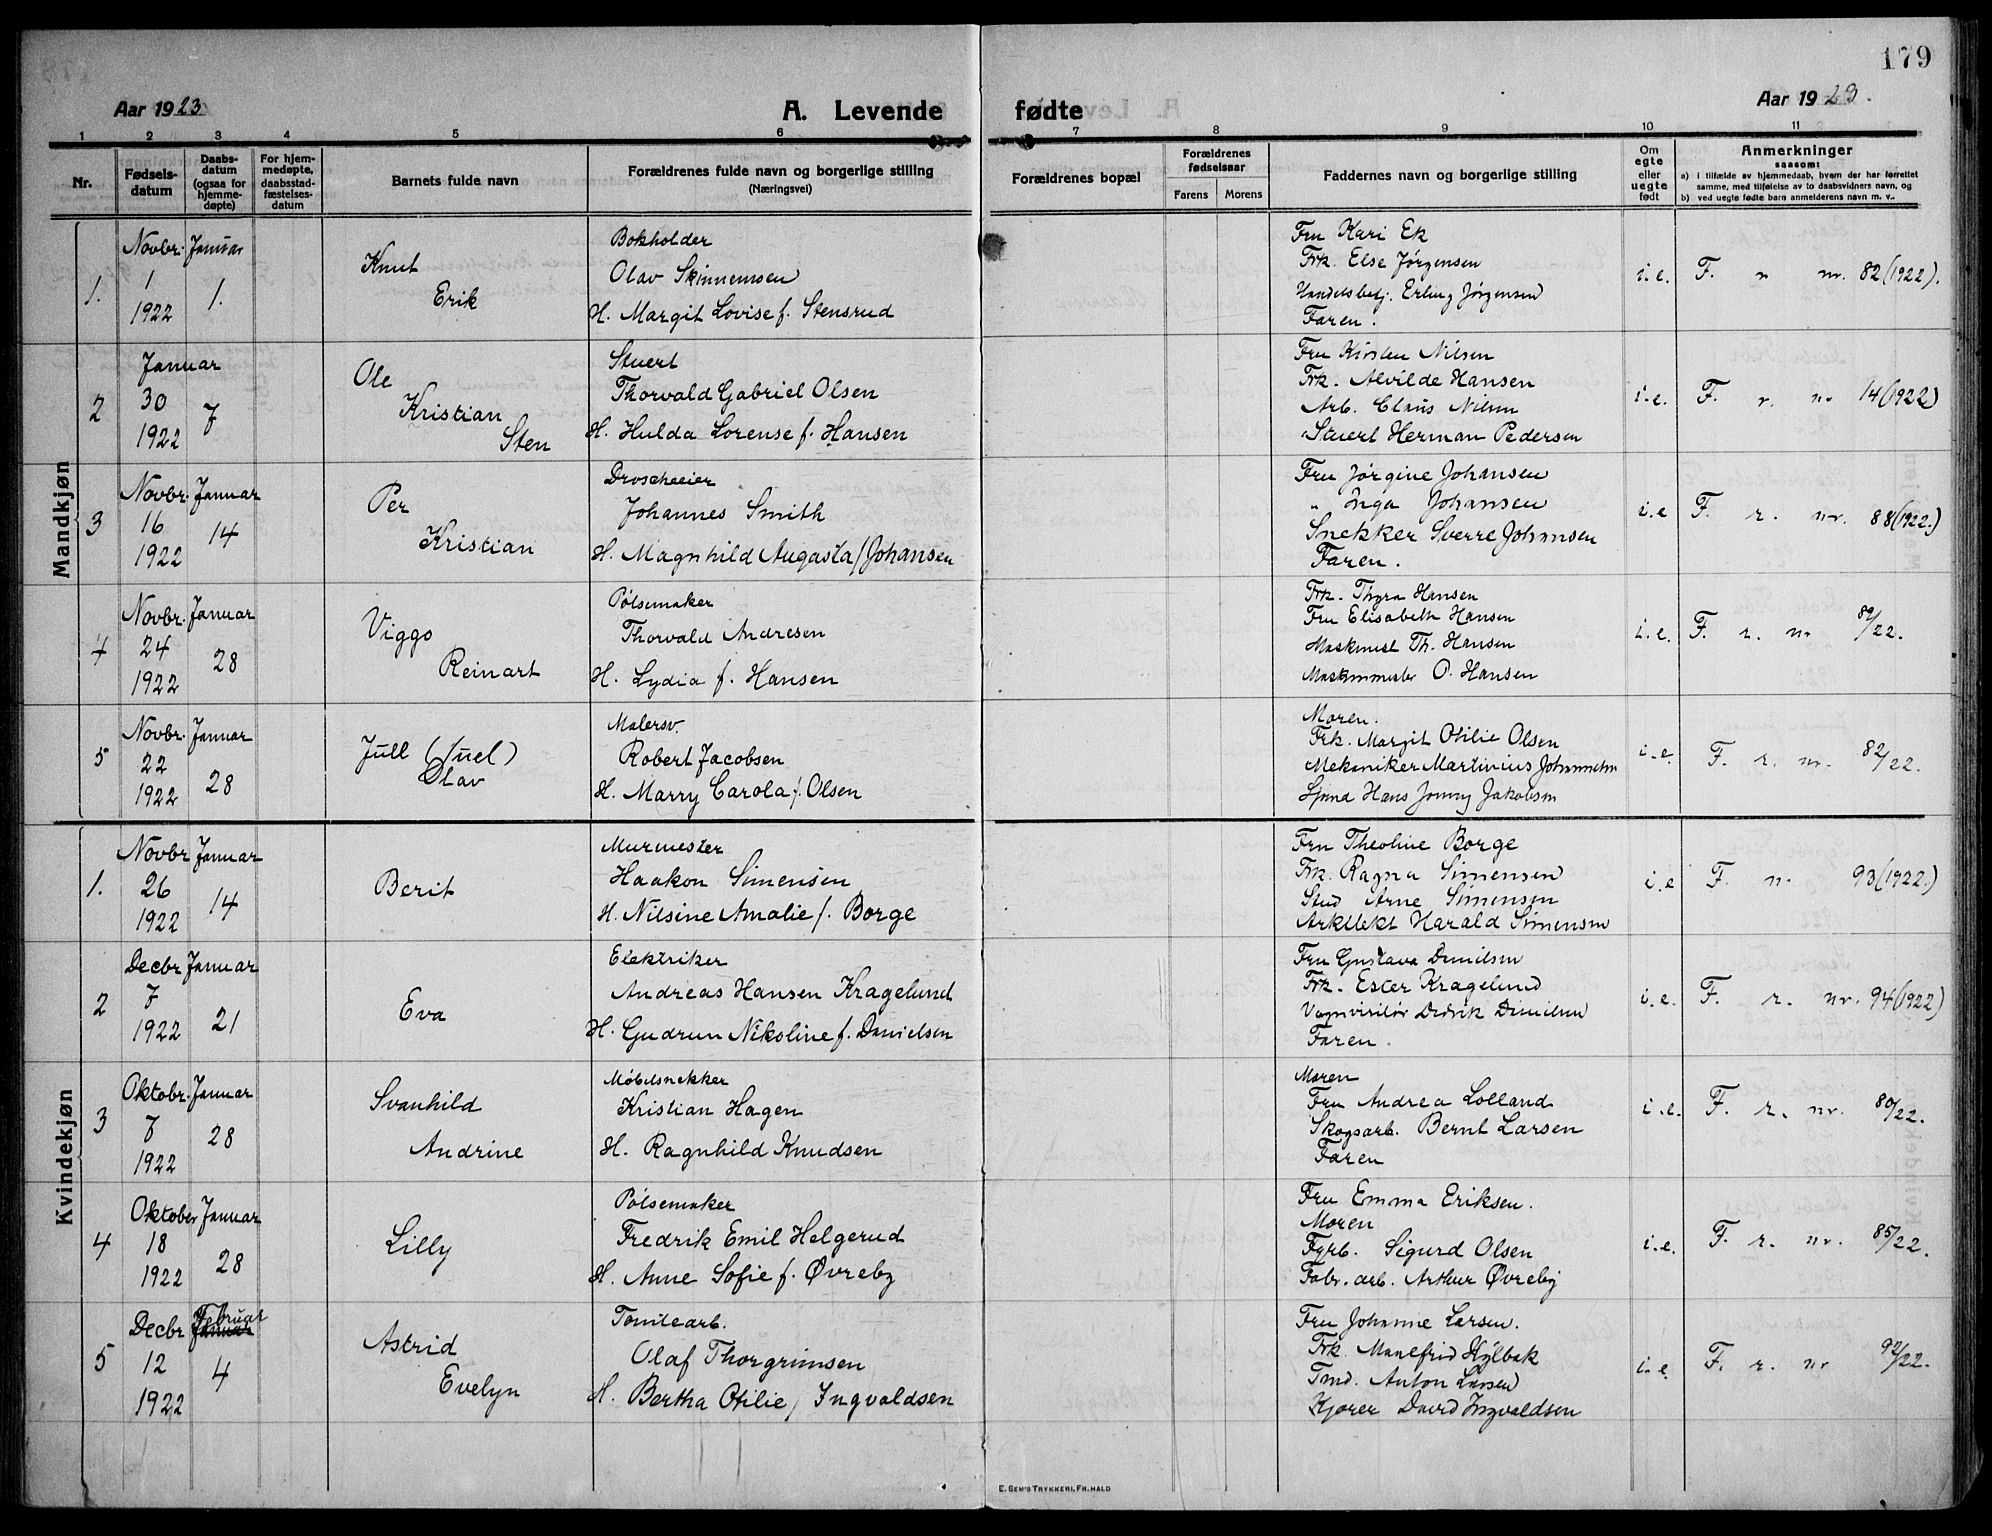 179
Aar 1923
A. Levende
fødte
Aar 1923.
1 2 3 4 5 6 7 8 9 10 11
Nr.
Fødsels-
datum
Daabs-
datum
(ogsaa for
hjemme-
døpte)
For hjem-
medøpte,
daabsstad-
fæstelses-
datum
Barnets fulde navn
Forældrenes fulde navn og borgerlige stilling
(Næringsvei)
Forældrenes bopæl
Forældrenes
fødselsaar
Farens
Morens
Faddernes navn og borgerlige stilling
Om
egte
eller
uegte
født
Anmerkninger
saasom:
a) i tilfælde av hjemmedaab, hvem der har forrettet
samme, med tilføielse av to daabsvidners navn, og
b) ved uegte fødte barn anmelderens navn m. v..
Mandkjøn
1.
Novbr.
1
1922
Januar
1.
Knut
Erik
Bokholder
Olav Skinnemoen
H. Margit Lovise f. Stensrud
Fru Kari Ek
Frk. Else Jörgensen
Handelsbetj. Erling Jörgensen
Faren.
i.e.
F. r nr. 82 (1922).
2
Januar
30
1922
7
Ole
Kristian
Sten
Stuert
Thorvald Gabriel Olsen
H. Hulda Lorense f. Hansen
Fru Kirsten Nilsen
Frk. Alvilde Hansen
Arb. Claus Nilsen
Stuert Herman Pedersen
i.e.
F. r. nr 14 (1922)
3
Novbr.
16
1922
Januar
14
Per
Kristian
Droscheeier
Johannes Smith
H. Magnhild Augasta f Johansen
Fru Jørgine Johansen
" Inga Johansen
Snekker Sverre Johansen
Faren.
i.e
F. r. nr. 88 (1922.)
4
Novbr.
24
1922
Januar
28
Viggo
Reinart
Pølsemaker
Thorvald Andresen
H. Lydia f. Hansen
Frk. Thyra Hansen
Fru Elisabeth Hansen
Maskinist Th. Hansen
Maskinmester O. Hansen
i.e.
F. r. nr 89/22.
5
Novbr.
22
1922
Januar
28
Jull (Juel)
Olav
Malersv.
Robert Jacobsen
H. Marry Carola f. Olsen
Moren.
Frk. Margit Otilie Olsen
Mekaniker Martinius Johannesen
Sjømd Hans Jonny Jakobsen
i.e.
F. r. nr. 82/22.
Kvindekjøn
1.
Novbr
26
1922
Januar
14
Berit
Murmester
Haakon Simensen
H. Nilsine Amalie f. Borge
Fru Theoline Borge
Frk. Ragna Simensen
Stud Arne Simensen
Arkitekt Harald Simensen
i.e
F. nr 93 (1922.)
2
Decbr
7
1922
Januar
21
Eva
Elektriker
Andreas Hansen Kragelund
H. Gudrun Nikoline f. Danielsen
Fru Gustava Danielsen
Frk. Ester Kragelund
Vognvisitør Didrik Danielsen
Faren.
i.e.
F. r. nr. 94 (1922)
3
Oktobr.
7
1922
Januar
28
Svanhild
Andrine
Møbelsnekker
Kristian Hagen
H. Ragnhild Knudsen
Moren
Fru Andrea Lolland
Skogsarb. Bernt Larsen
Faren
i.e.
F. r. nr. 80/22.
4
Oktober
18
1922
Januar
28
Lilly
Pølsemaker
Fredrik Emil Helgerud
H. Anne Sofie f. Øvreby
Fru Emma Eriksen.
Moren
Fyrb. Sigurd Olsen
Fabr. arb. Arthur Øvreby
i.e.
F. r. nr. 85/22.
5
Decbr
12
1922
Februar
Januar
4
Astrid
Evelyn
Tomtearb.
Olaf Thorgrimsen
H. Bertha Otilie f Ingvaldsen
Fru Johanne Larsen.
Frk. Manefrid Hylbak
Tmd. Anton Larsen
Kjører David Ingvaldsen
i.e
F. r. nr 92/22.
E. SEM'S TRYKKERI, FR.HALD